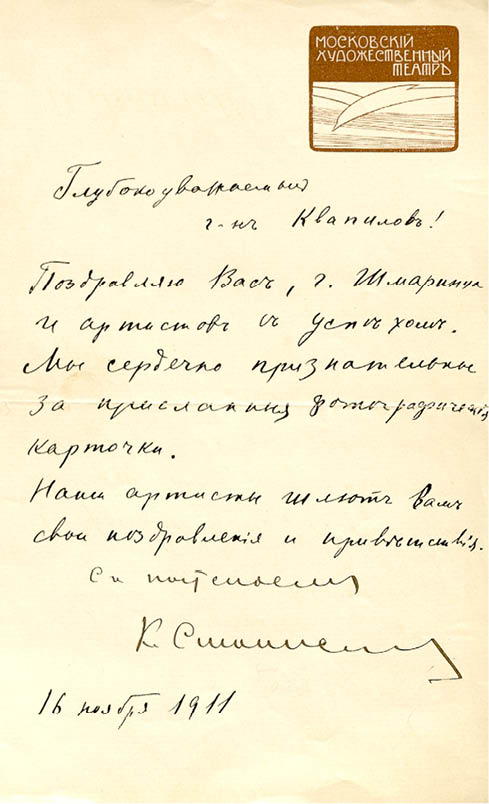 МОСКОВСКІЙ
ХУДОЖЕСТВЕННЫЙ
ТЕАТРЪ
Глубокоуважаемый
г-нъ Квапиловъ!
Поздравляю Васъ, г. Шмаранца
и артистовъ съ успѣхомъ.
Мы сердечно признательны
за присланныя фотографическія
карточки.
Наши артисты шлютъ Вамъ
свои поздравленія и привѣтствія.
Съ почтеніемъ
К. Станисл
16 ноября 1911